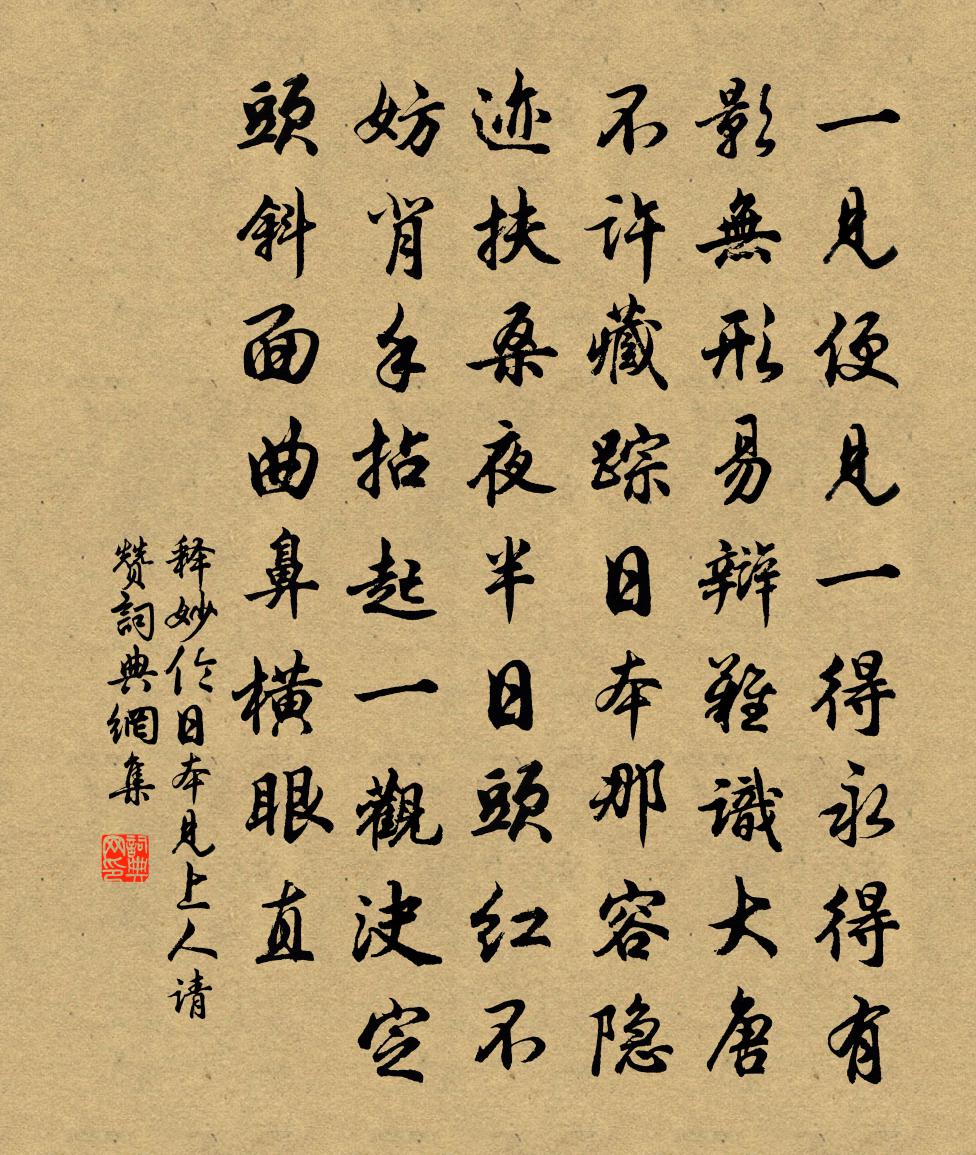 一見便見一得永得有
影無形易辯難識大唐
不许藏踪日本那容隐
迹扶桑夜半日頭红不
妨背手拈起一觀決定
頭斜面曲鼻横眼直
释妙伦日本見上人请
赞詞典網集
詞典网印